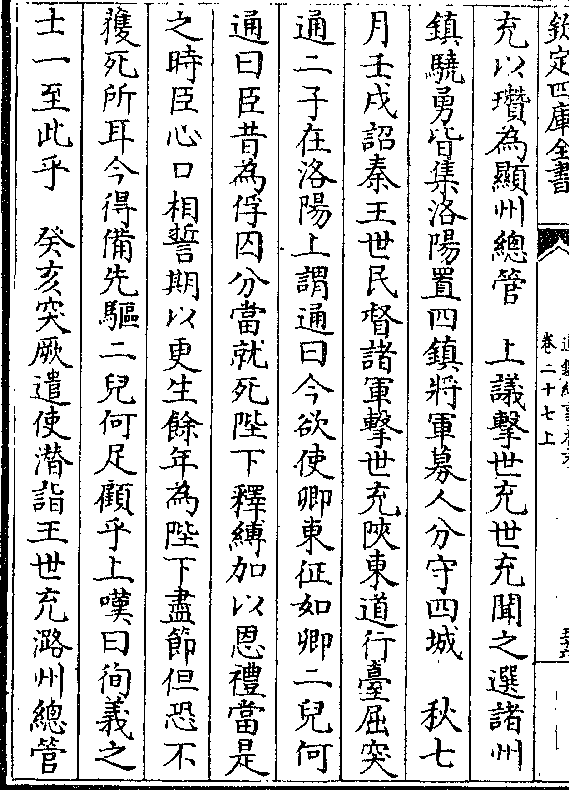 欽定四庫全書
卷二十七上
充以瓚為顯州總管　上議擊世充世充聞之選諸州
鎮驍勇皆集洛陽置四鎮將軍募人分守四城　秋七
月壬戌詔秦王世民督諸軍擊世充陜東道行臺屈突
通二子在洛陽上謂通曰今欲使卿東征如卿二兒何
通曰臣昔為俘囚分當就死陛下釋縛加以恩禮當是
之時臣心口相誓期以更生餘年為陛下盡節但恐不
獲死所耳今得備先驅二兒何足顧乎上嘆曰徇義之
士一至此乎　癸亥突厥遣使潛詣王世充潞州總管